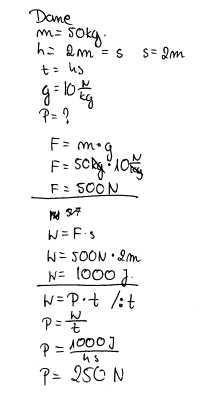 Dane
m = 50kg.
h = 2m = s s = 2m
t = 4s
g = 10 N/kg
P = ?
F = m·g
F = 50kg · 10 N/kg
F = 500N
W = F·s
W = 500N · 2m
W = 1000 J.
W = P·t /:t
P = W/t
P = 1000J/4s
P = 250 N